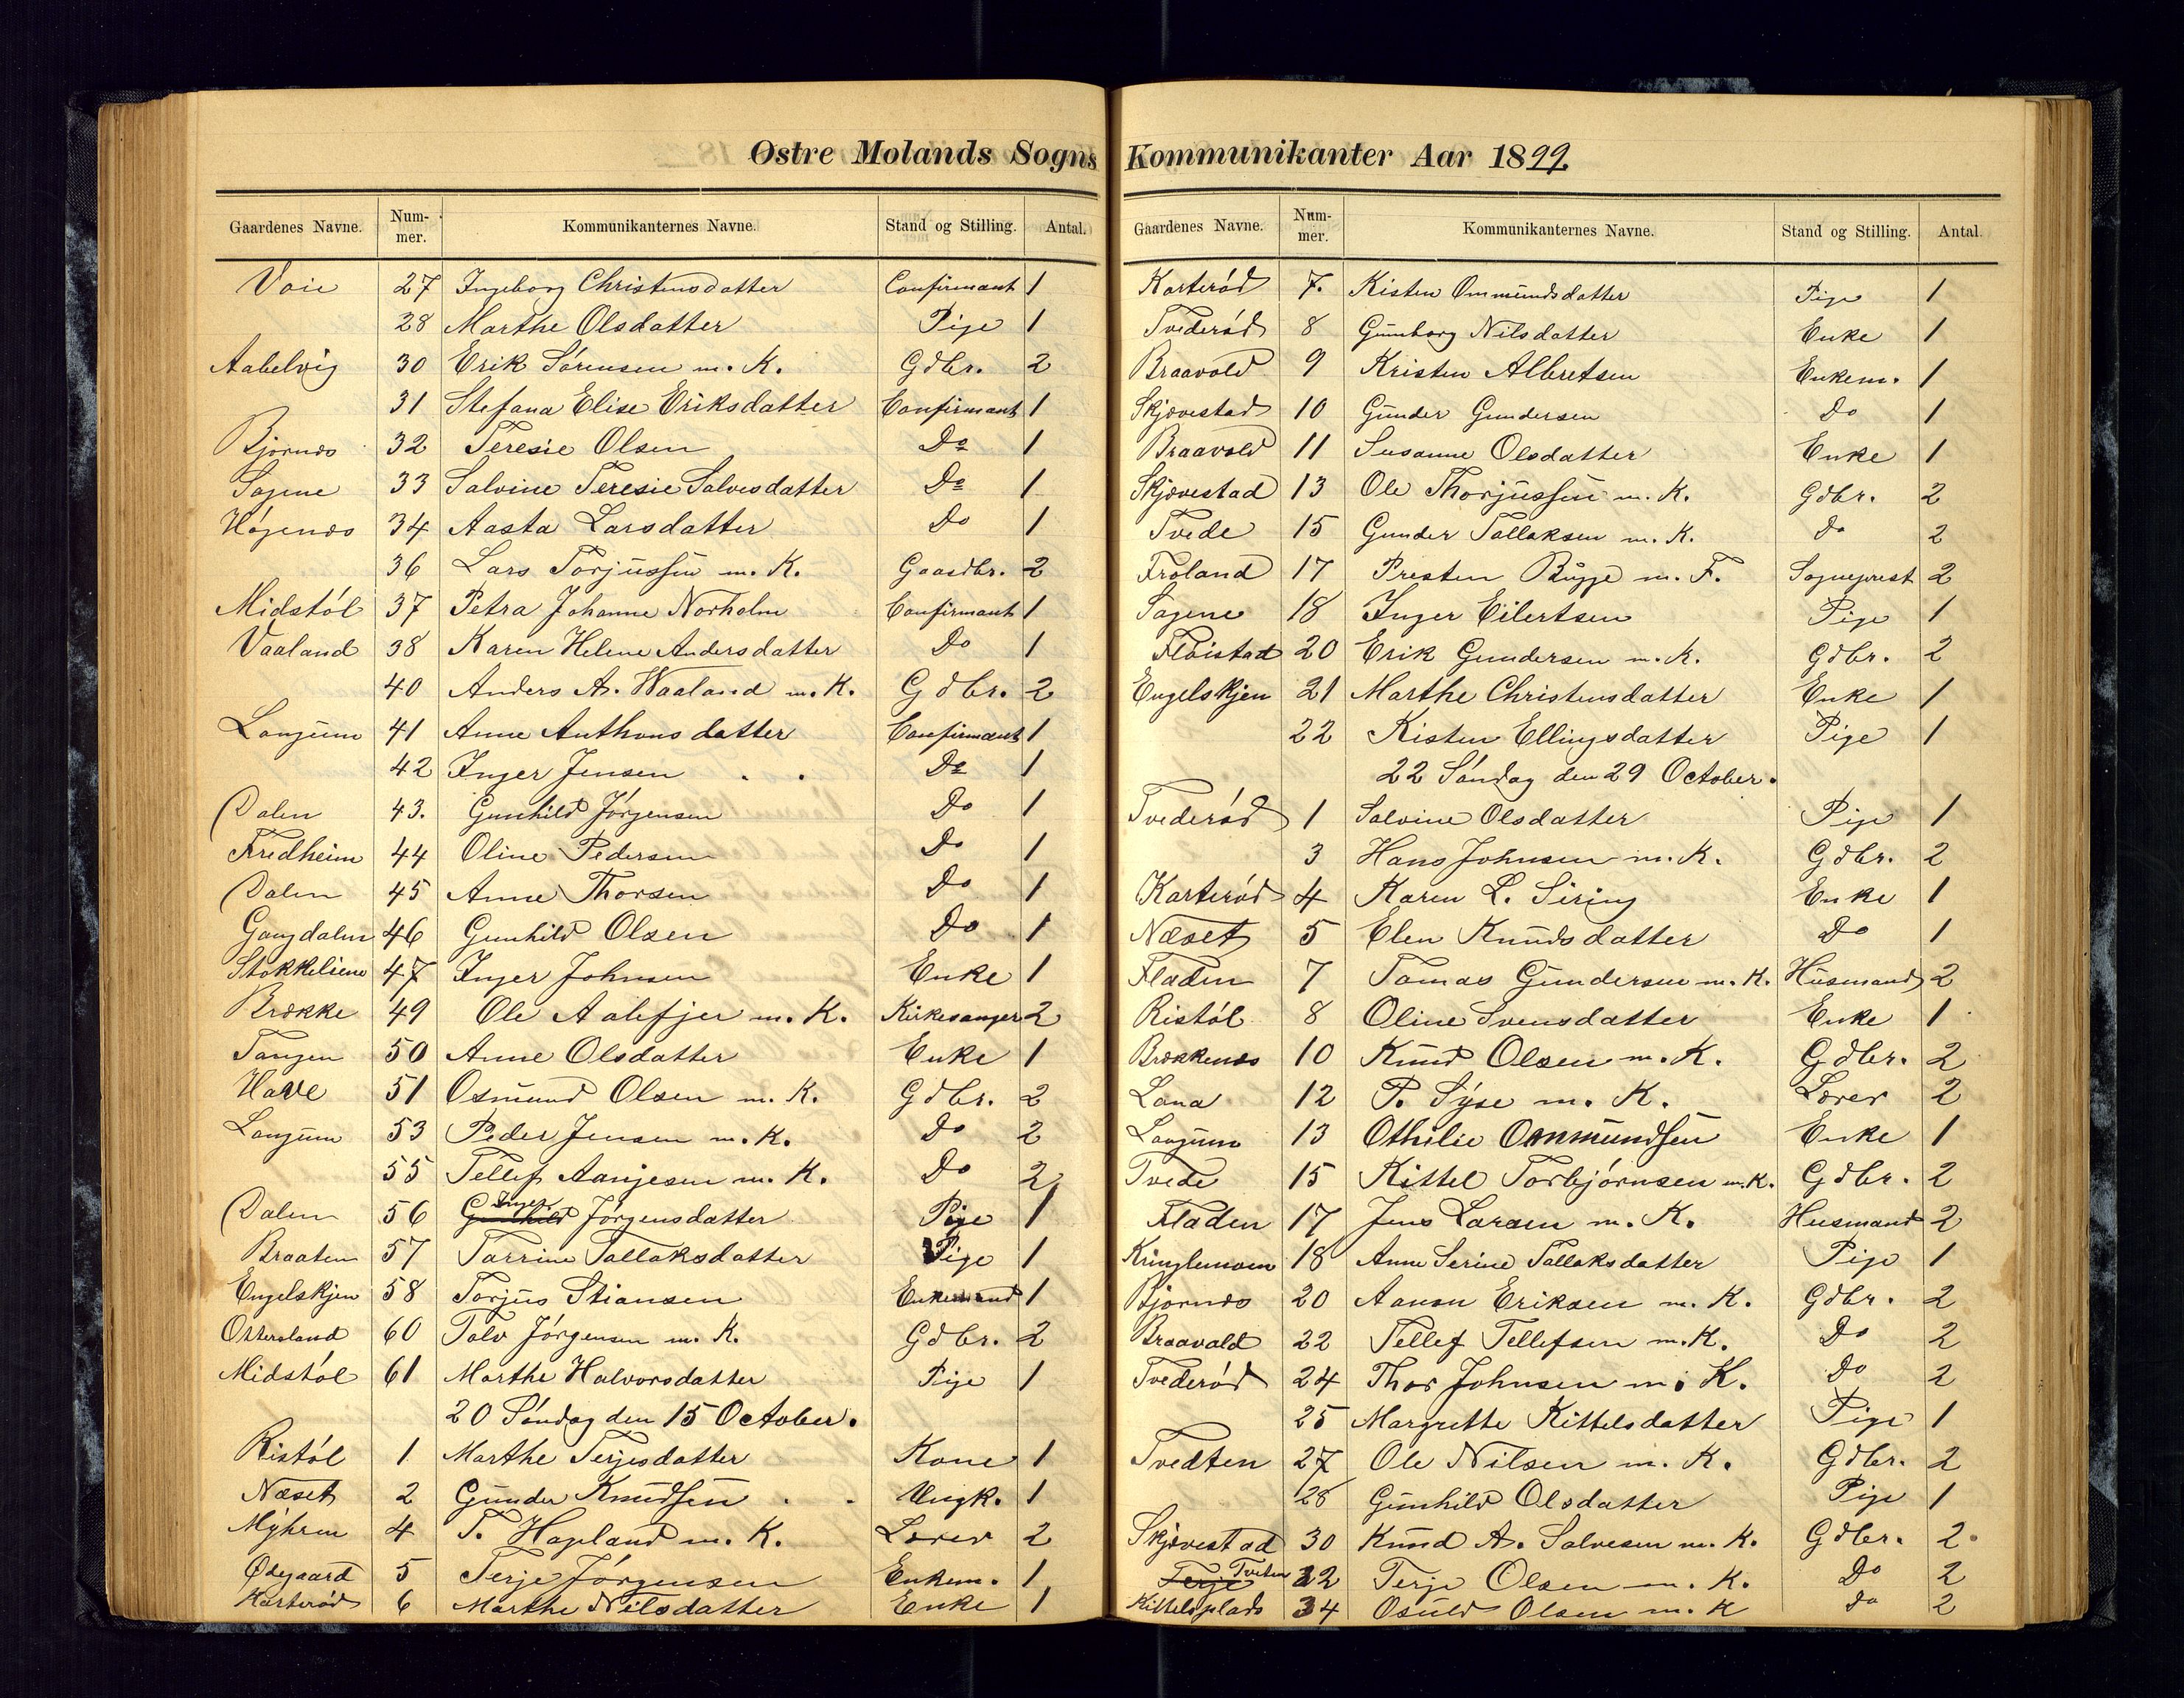 Østre Molands Sogns
Gaardenes Navne. Num-mer. Kommunikanternes Navne. Stand og Stilling. Antal.
Voie 27 Ingeborg Christensdatter Confirmant 1
28 Marthe Olsdatter Pige 1
Aabelvig 30 Erik Sørensen m. K. Gdbr. 2
31 Stefana Elise Eriksdatter Confirmant 1
Bjørnes 32 Teresie Olsen Do 1
Sagene 33 Salvine Teresie Salvesdatter Do 1
Høgenæs 34 Aasta Larsdatter Do 1
36 Lars Torjussen m. K. Gaardbr. 2
Midstøl 37 Petra Johanne Norholm Confirmant 1
Vaaland 38 Karen Helene Andersdatter Do 1
40 Anders A. Waaland m. K. Gdbr. 2
Langum 41 Anne Anthonsdatter Confirmant 1
42 Inger Jensen Do 1
Dalen 43. Gunhild Jörgensen Do 1
Fredheim 44 Oline Pedersen Do 1
Dalen 45 Anne Thorsen Do 1
Gangdalen 46 Gunhild Olsen Do 1
Stokkeliene 47 Inger Johnsen Enke 1
Brække 49 Ole Aalefjer m. K. Kirkesanger 2
Tangen 50 Anne Olsdatter Enke 1
Have 51 Osmund Olsen m. K. Gdbr. 2
Langum 53 Peder Jensen m. K. Do 2
55 Tellef Aanjesen m. K. Do 2
Dalen 56 Gunhild Inger Jörgensdatter Pige 1
Braaten 57 Tarrine Tallaksdatter Pige 1
Engelskjen 58 Torjus Stiansen Enkemand 1
Ottersland 60 Talv Jörgensen m. K. Gdbr. 2
Midstøl 61 Marthe Halvorsdatter Pige 1
20 Söndag den 15 October.
Ristøl 1 Marthe Terjesdatter Kone 1
Næset 2 Gunder Knudsen Ungk. 1
Myhren 4 T. Hapland m. K. Lærer 2
Ødegaard 5 Terje Jörgensen Enkem. 1
Karterød 6 Marthe Nilsdatter Enke 1
Kommunikanter Aar 1899.
Gaardenes Navne. Num-mer. Kommunikanternes Navne. Stand og Stilling. Antal.
Karterød 7. Kisten Ommundsdatter Pige 1
Tvederød 8 Gunborg Nilsdatter Enke 1
Braavold 9 Kristen Albretsen Enkem. 1
Skjævestad 10 Gunder Gundersen Do 1
Braavold 11 Susanne Olsdatter Enke 1
Skjævestad 13 Ole Thorjussen m. K. Gdbr. 2
Tvede 15 Gunder Tallaksen m. K. Do 2
Froland 17 Presten Bugge m. F. Sogneprest 2
Sagene 18 Inger Eilertsen Pige 1
Fløistad 20 Erik Gundersen m. K. Gdbr. 2
Engelskjen 21 Marthe Christensdatter Enke 1
22 Kisten Ellingsdatter Pige 1
22 Söndag den 29 October.
Tvederød 1 Salvine Olsdatter Pige 1
3 Hans Johnsen m. K. Gdbr. 2
Karterød 4 Karen L. Siring Enke 1
Næset 5 Elen Knudsdatter Do 1
Fladen 7 Tomas Gundersen m. K. Husmand 2
Ristøl 8 Oline Svensdatter Enke 1
Brækkenæs 10 Knud Olsen m. K. Gdbr. 2
Lana 12 P. Syse m. K. Lærer 2
Langum 13 Othilie Ommundsen Enke 1
Tvede 15 Kittel Torbjørnsen m. K. Gdbr. 2
Fladen 17 Jens Larsen m. K. Husmand 2
Kringlemoen 18 Anne Serine Tallaksdatter Pige 1
Bjørnæs 20 Aanon Eriksen m. K. Gdbr. 2
Braavold 22 Tellef Tellefsen m. K. Do 2
Tvederød 24 Thor Johnsen m. K. Do 2
25 Margrethe Kittelsdatter Pige 1
Tvedten 27 Ole Nilsen m. K. Gdbr. 2
28 Gunhild Olsdatter Pige 1
Skjævestad 30 Knud A. Salvesen m. K. Gdbr. 2
Terje Tveten 32 Terje Olsen m. K. Do 2
Kittelsplads 34 Osuld Olsen m. K Do 2